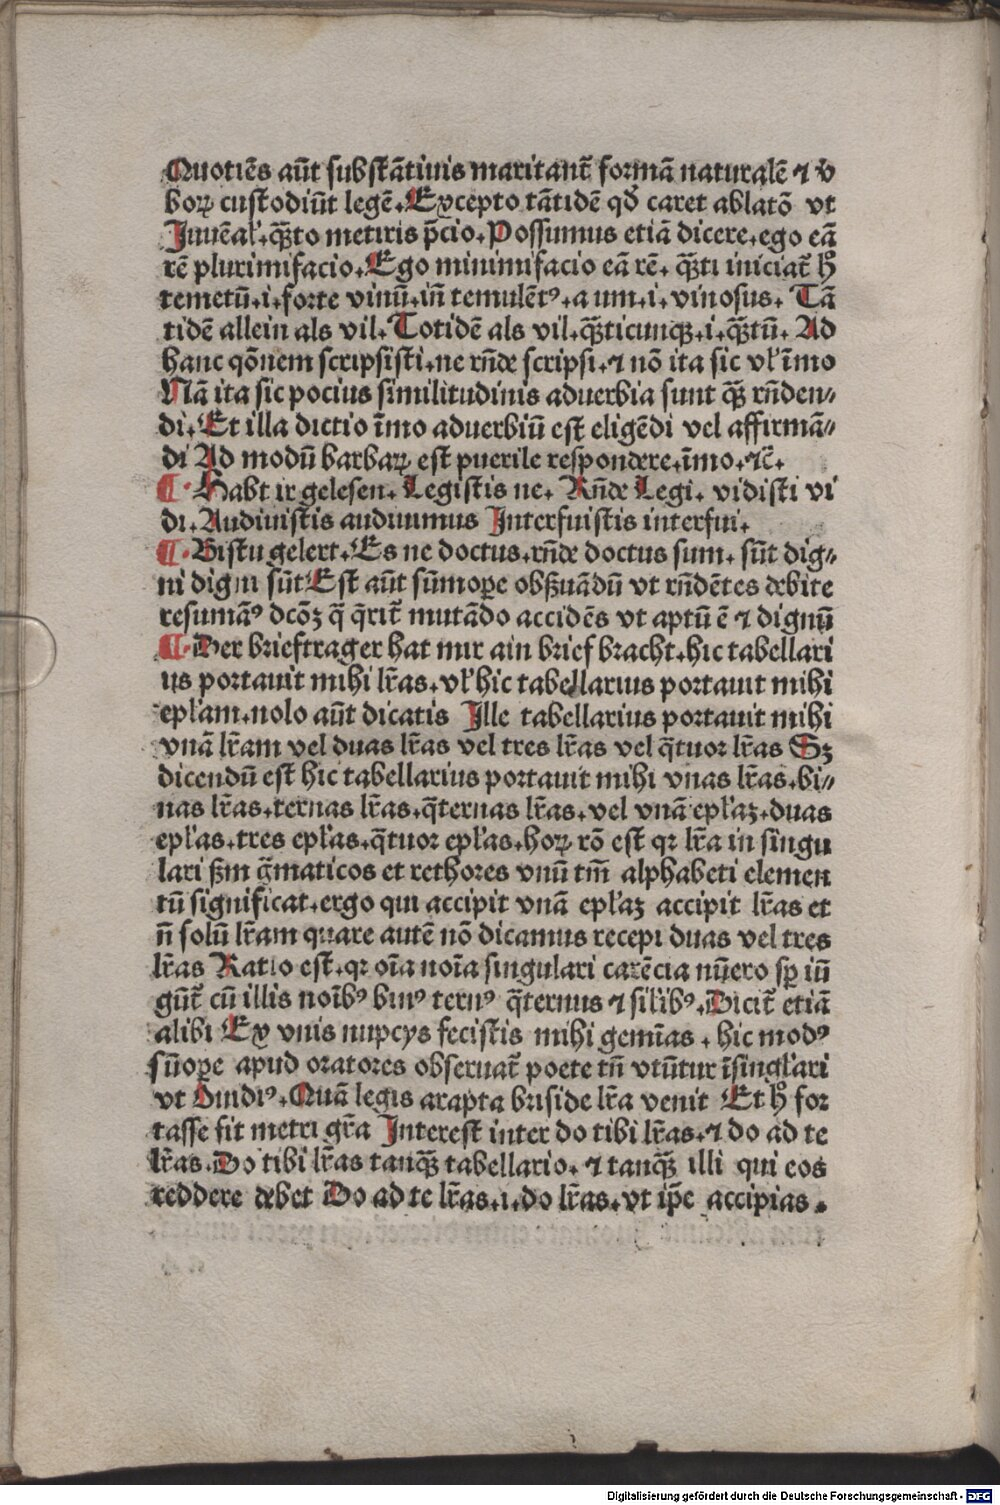 Quotiēs aūt substātiuis maritant̄ formā naturalē ⁊ v̄
boꝝ custodiūt legē.Excepto tātidē qd̄ caret ablatō vt
Juuēal'.q̄ꝫto metiris p̄cio.Possumus etiā dicere.ego eā
rē plurimifacio.Ego minimifacio eā rē. q̄ꝫti iniciat̄ h̄
temetū.i.forte vinū.iñ temulēt⁹.a um.i.vinosus. Tā
tidē allein als vil.Totidē als vil.q̄ꝫticunqꝫ.i.q̄ꝫtū. Ad
hanc qōnem scripsisti.ne rñde scripsi.⁊ nō ita sic vl' īmo
Nā ita sic pocius similitudinis aduerbia sunt q̄ꝫ rñden⸗
di.Et illa dictio īmo aduerbiū est eligēdi vel affirmā⸗
di Ad modū barbaꝝ est puerile respondere.īmo.⁊c̄.
¶ Habt ir gelesen. Legistis ne. Rñde Legi. vidisti vi
di.Audiuistis audiuimus Interfuistis interfui.
¶ Bistu gelert.Es ne doctus.rñde doctus sum. sūt dig⸗
ni digni sūt Est aūt sūmoꝑe obẞuādū vt rñdētes debite
resumā⁹ dcōꝫ q̄ q̄rit̄ mutādo accidēs vt aptū ē ⁊ dignū
¶ Der brieftrager hat mir ain brief bracht.hic tabellari
us portauit mihi lr̄as.vl' hic tabellarius portauit mihi
epl'am.nolo aūt dicatis Ille tabellarius portauit mihi
vnā lr̄am vel duas lr̄as vel tres lr̄as vel q̄tuor lr̄as Sꝫ
dicendū est hic tabellarius portauit mihi vnas lr̄as.bi⸗
nas lr̄as.ternas lr̄as.q̄ternas lr̄as.vel vnā epl'aꝫ.duas
epl'as.tres epl'as.q̄tuor epl'as.hoꝝ rō est qr lr̄a in singu
lari ẞm ḡmaticos et rethores vnū tm̄ alphabeti elemen
tū significat.ergo qui accipit vnā epl'aꝫ accipit lr̄as et
ñ solū lr̄am quare autē nō dicamus recepi duas vel tres
lr̄as Ratio est.qr oīa noīa singulari carēcia nūero sꝑ iū
gūt̄ cū illis noīb⁹ bin⁹ tern⁹ q̄ternus ⁊ silib⁹.Dicit̄ etiā
alibi Ex vnis nupcijs fecistis mihi gemīas . hic mod⁹
sūoꝑe apud oratores obseruat̄ poete tñ vtūtur īsingl'ari
vt Ouidi⁹.Quā legis arapta briside lr̄a venit Et h̄ for
tasse fit metri gr̄a Interest inter do tibi lr̄as.⁊ do ad te
lr̄as.Do tibi lr̄as tanq̄ꝫ tabellario. ⁊ tanq̄ꝫ illi qui eos
reddere debet Do ad te lr̄as.i.do lr̄as.vt ip̄e accipias.
Digitalisierung gefördert durch die Deutsche Forschungsgemeinschaft - DFG